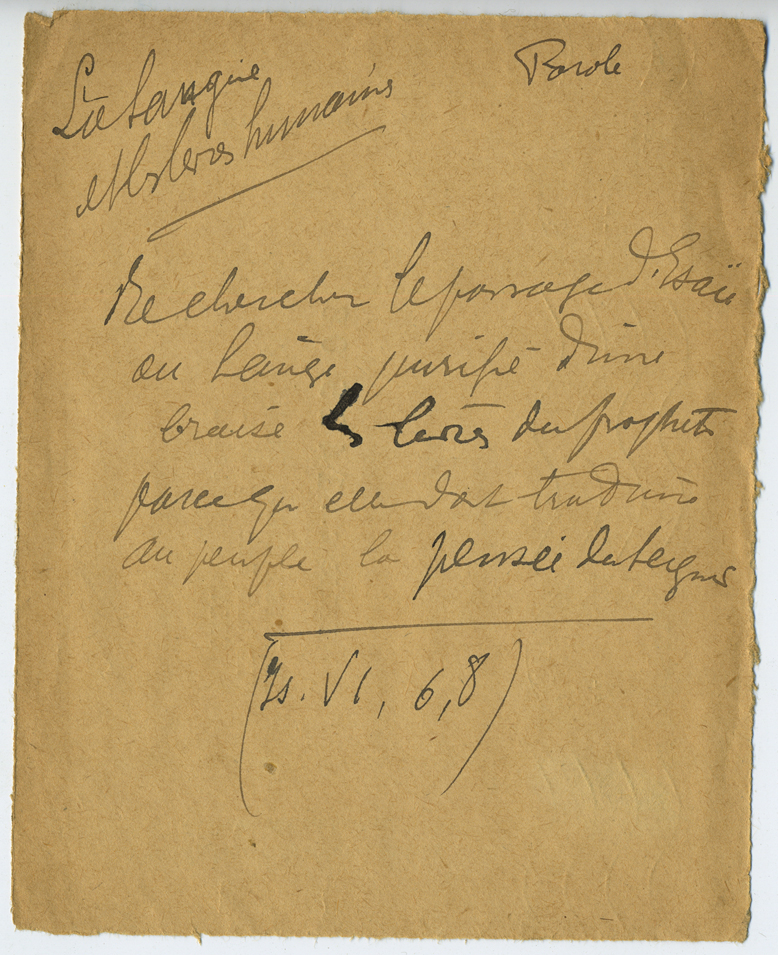 Parole
La langue
et les lèvres humaines
Rechercher le passage d'Esaïe
ou l'ange purifie d'une
braise les lèvres du prophète
parce qu'elle doit traduire
au peuple la pensée du Seigneur
(Is. VI, 6,8)